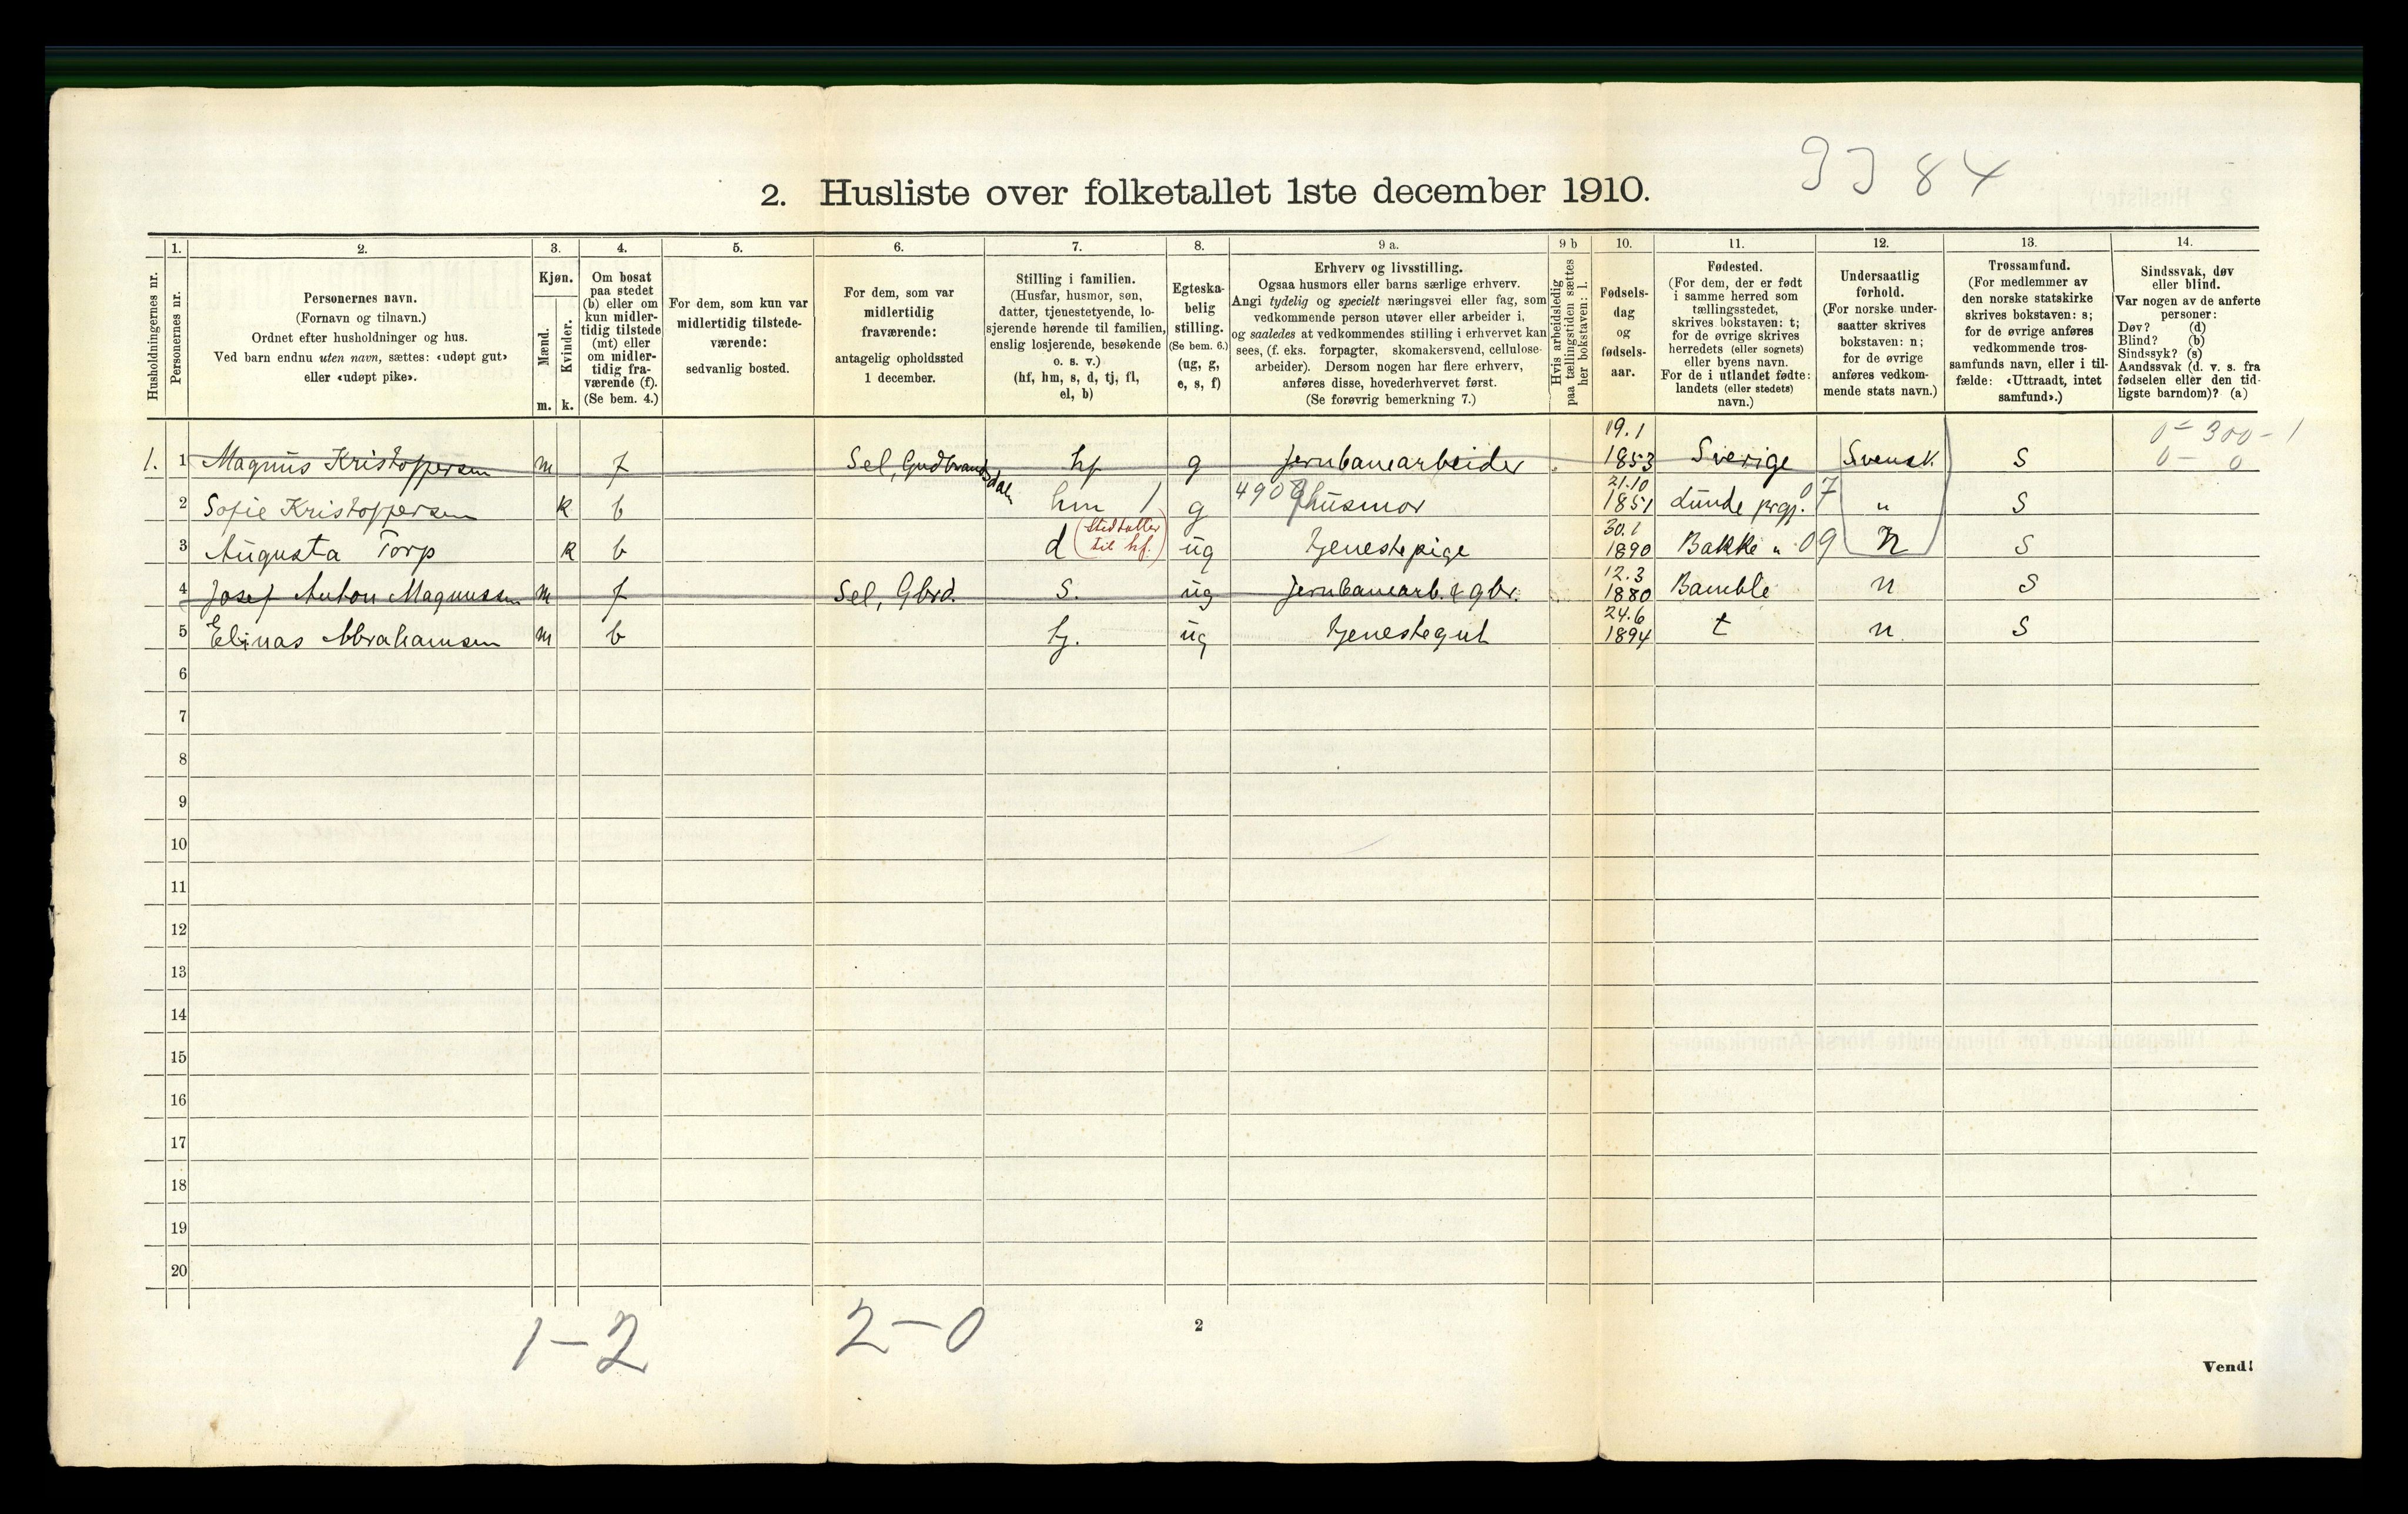 3384
2. Husliste over folketallet 1ste december 1910.
Husholdningernes nr.
1.
Personernes nr.
2.
Personernes navn.
(Fornavn og tilnavn.)
Ordnet efter husholdninger og hus.
Ved barn endnu uten navn, sættes: «udøpt gut»
eller «udøpt pike».
3.
Kjøn.
Mænd.
m.
Kvinder.
k.
4.
Om bosat
paa stedet
(b) eller om
kun midler-
tidig tilstede
(mt) eller
om midler-
tidig fra-
værende (f).
(Se bem. 4.)
5.
For dem, som kun var
midlertidig tilstede-
værende:
sedvanlig bosted.
6.
For dem, som var
midlertidig
fraværende:
antagelig opholdssted
1 december.
7.
Stilling i familien.
(Husfar, husmor, søn,
datter, tjenestetyende, lo-
sjerende hørende til familien,
enslig losjerende, besøkende
o. s. v.)
(hf, hm, s, d, tj, fl,
el, b)
8.
Egteska-
belig
stilling.
(Se bem. 6.)
(ug, g,
e, s, f)
9 a.
Erhverv og livsstilling.
Ogsaa husmors eller barns særlige erhverv.
Angi tydelig og specielt næringsvei eller fag, som
vedkommende person utøver eller arbeider i,
og saaledes at vedkommendes stilling i erhvervet kan
sees, (f. eks. forpagter, skomakersvend, cellulose-
arbeider). Dersom nogen har flere erhverv,
anføres disse, hovederhvervet først.
(Se forøvrig bemerkning 7.)
9 b
Hvis arbeidsledig
paa tællingstiden sættes
her bokstaven: l.
10.
Fødsels-
dag
og
fødsels-
aar.
11.
Fødested.
(For dem, der er født
i samme herred som
tællingsstedet,
skrives bokstaven: t;
for de øvrige skrives
herredets (eller sognets)
eller byens navn.
For de i utlandet fødte:
landets (eller stedets)
navn.)
12.
Undersaatlig
forhold.
(For norske under-
saatter skrives
bokstaven: n;
for de øvrige
anføres vedkom-
mende stats navn.)
13.
Trossamfund.
(For medlemmer av
den norske statskirke
skrives bokstaven: s;
for de øvrige anføres
vedkommende tros-
samfunds navn, eller i til-
fælde: «Uttraadt, intet
samfund».)
14.
Sindssvak, døv
eller blind.
Var nogen av de anførte
personer:
Døv? (d)
Blind? (b)
Sindssyk? (s)
Aandssvak (d. v. s. fra
fødselen eller den tid-
ligste barndom)? (a)
0 - 300 - 1
0 - 0
1. 1 Magnus Kristoffersen m f Sel, Gudbrandsdalen hf g Jernbanearbeider 19.1 1853 Sverige Svensk s
2 Sofie Kristoffersen k b hm 1 g 4908 husmor 21.10 1851 Lunde prgj. 07 " s
3 Augusta Torp k b d (Steddatter til hf.) ug tjenestepige 30.1 1890 Bakke " 09 n s
4 Josef Anton Magnussen m f Sel, Gbrd. s. ug Jernbanearb. & gbr. 12.3 1880 Bamble n s
5 Elinas Abrahamsen m b tj. ug tjenestegut 24.6 1894 t n s
6
7
8
9
10
11
12
13
14
15
16
17
18
19
20
1 - 2 2 - 0
2
Vend!